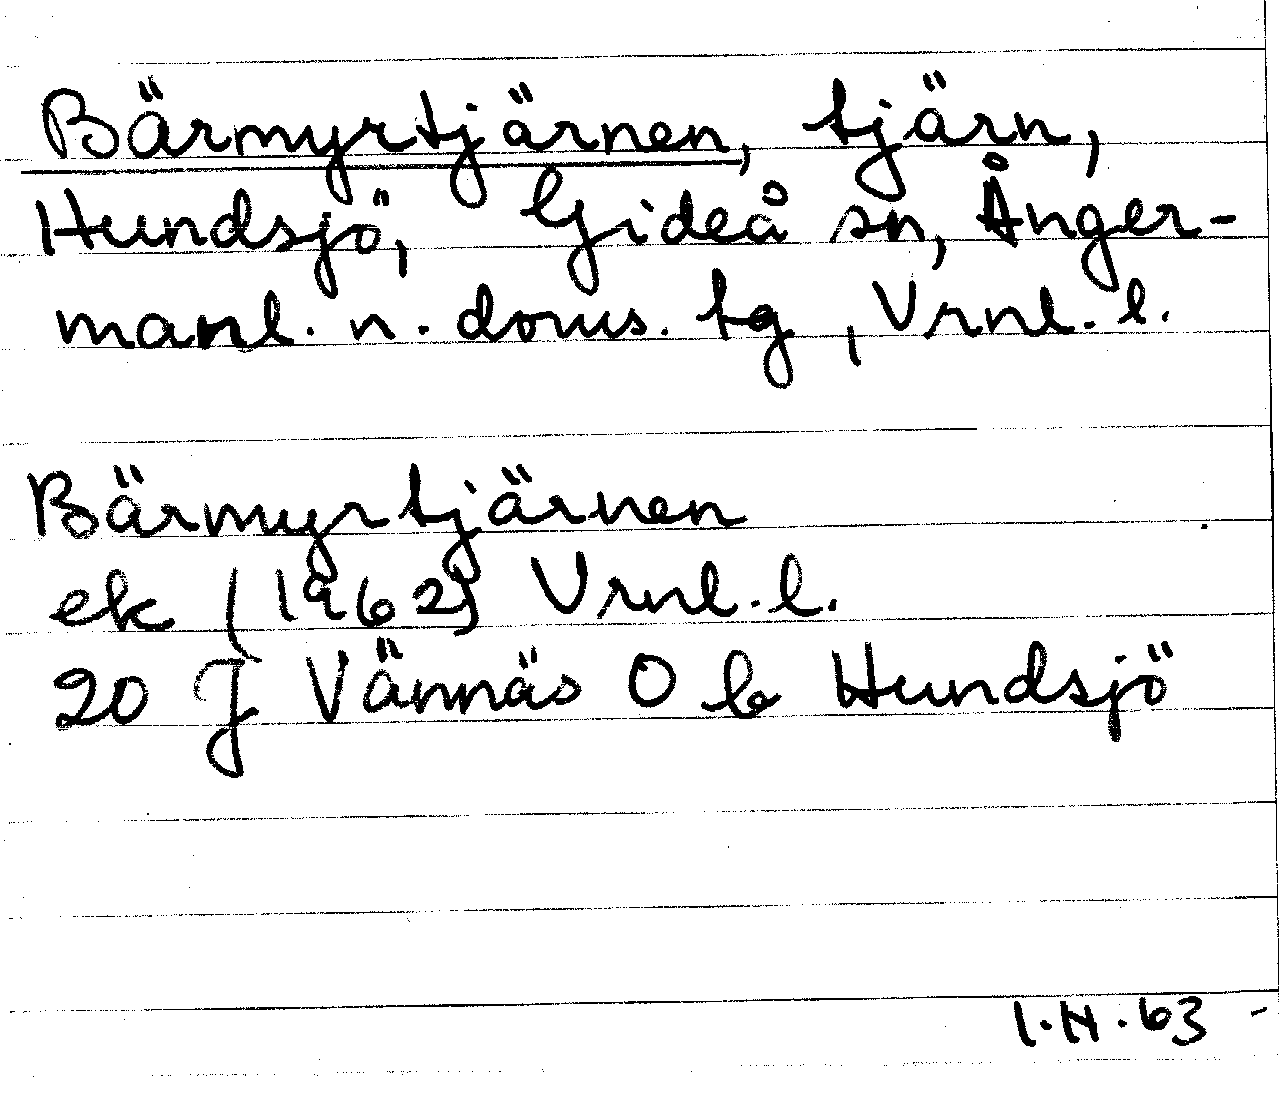 Bärmyrtjärnen, tjärn,
Hundsjö, Gideå sn, Ånger-
manl. n. doms. tg, Vrnl. l.
Bärmyrtjärnen
ek (1962) Vrnl. l.
20 J Vännäs O b Hundsjö
63